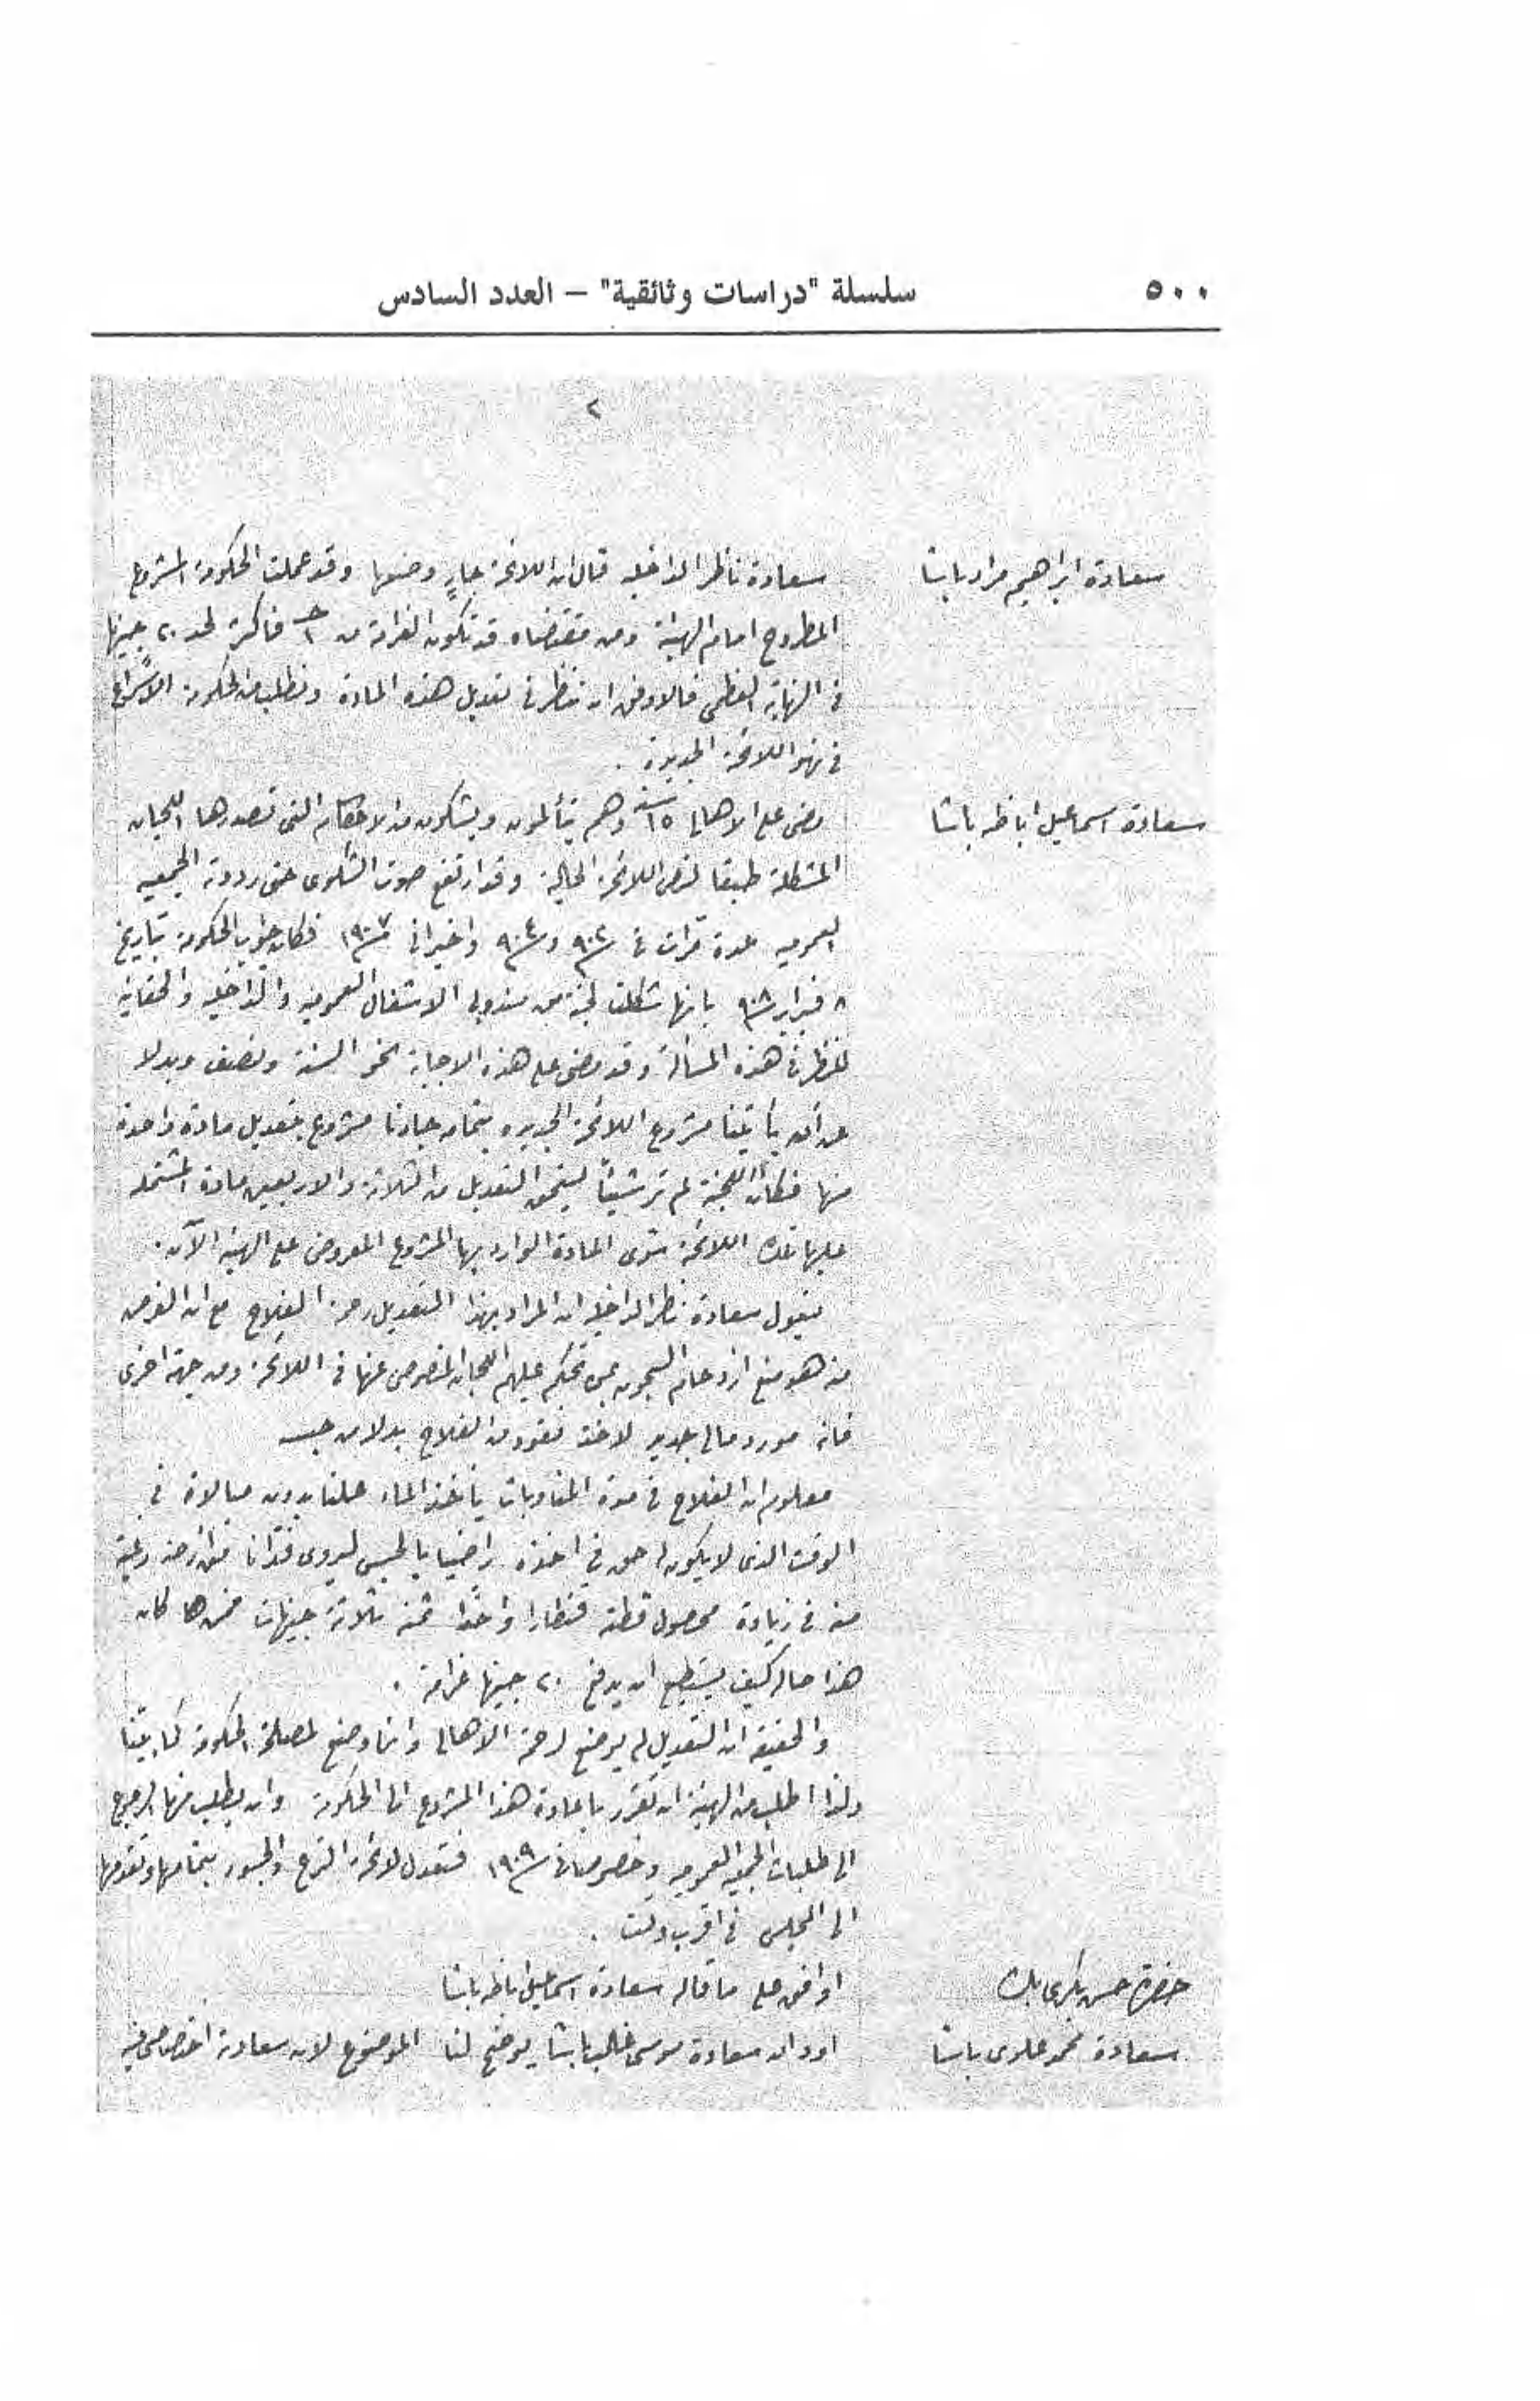 ٥٠٠
سلسلة "دراسات وثائقية" – العدد السادس
٢
سعادة ابراهيم مراد باشا
سعادة ناظر الداخليه قال ان اللائحة جارٍ وضعها وقد عملت الحكومة المشروع
المطروح امام الهيئة ومن مقتضاه قد تكون الغرامة من ١ فاكثر لحد ٢٠ جنيها
في النهاية العظمى فالاوفق ان ننظر في تعديل هذه المادة ونطلب من الحكومة الاسراع
في نهو اللائحة الجديدة .
سعادة اسماعيل اباظه باشا
مضى على الاهالى ١٥ سنة وهم يتألمون ويشكون من الاحكام التى تصدرها اللجان
المشكلة طبقا لنص اللائحة الحالية وقد ارتفع صوت الشكوى حتى رددته الجمعيه
العموميه عدة مرات في سنة ٩٠٢ وسنة ٩٠٤ واخيرا في سنة ١٩٠٧ فكان جواب الحكومة بتاريخ
٨ فبراير سنة ٩٠٨ بانها شكلت لجنة من مندوبى الاشغال العموميه والداخليه والحقانية
للنظر في هذه المسألة وقد مضى على هذه الاجابة نحو السنة ونصف وبدلا
عن أن يأتينا مشروع اللائحة الجديده بتمامه جاءنا مشروع بتعديل مادة واحدة
منها فكأن اللجنة لم تر شيئاً يستحق التعديل من الثلاثة والاربعين مادة المشتمله
عليها تلك اللائحة سوى المادة الوارد بها المشروع المعروض على الهيئة الآن .
يقول سعادة ناظر الداخليه ان المراد بهذا التعديل رحمة الفلاح مع ان الغرض
منه هو منع ازدحام السجون بمن تحكم عليهم اللجان المنصوص عنها في اللائحة ومن جهة اخرى
فانه مورد مالى جديد لاخذ نقود من الفلاح بدلا من حبسه
معلوم ان الفلاح في مدة المناوبات يأخذ الماء علنا بدون مبالاة في
الوقت الذى لا يكون له حق في اخذه راضيا بالحبس ليروى فدانا من أرضه رغبة
منه في زيادة محصول قطنه قنطارا واحدا ثمنه ثلاثة جنيهات فمن كان
هذا حاله كيف يستطيع ان يدفع ٢٠ جنيها غرامة .
والحقيقة ان التعديل لم يوضع لرحمة الاهالى وانما وضع لمصلحة الحكومة كما بيّنا
ولذا اطلب من الهيئة ان تقرر باعادة هذا المشروع الى الحكومة وان يطلب منها الرجوع
الى طلبات الجمعيه العموميه وخصوصا في سنة ١٩٠٩ فتعدل لائحة الترع والجسور بتمامها وتقدمها
الى المجلس في اقرب وقت .
حضرة حسن بكرى بك
اوافق على ما قاله سعادة اسماعيل اباظه باشا
سعادة محمد علوى باشا
اود ان سعادة موسى غالب باشا يوضح لنا الموضوع لان سعادته اخصوصى فيه